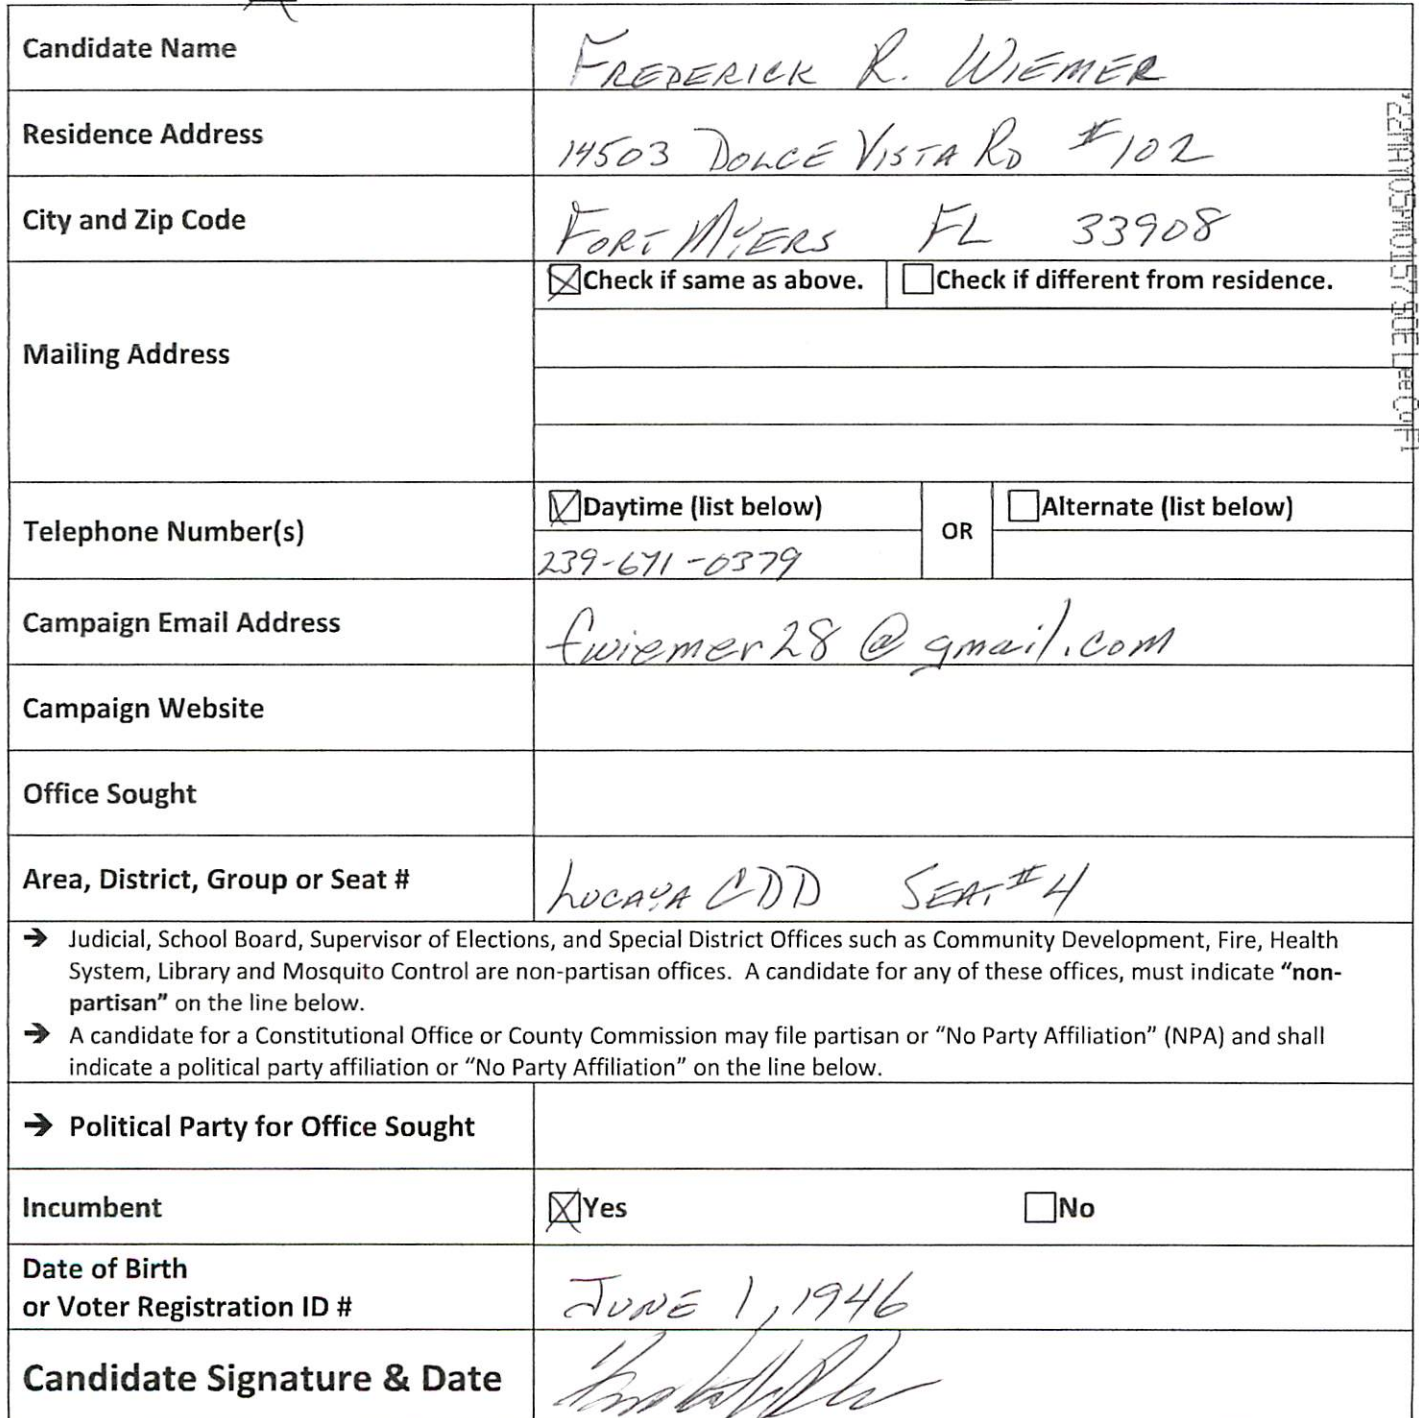 Candidate Name FREDERICK R. WIEMER
Residence Address 14503 DOLCE VISTA RD #102
City and Zip Code FORT MYERS FL 33908
☒ Check if same as above. ☐ Check if different from residence.
Mailing Address
Telephone Number(s) ☒ Daytime (list below) OR ☐ Alternate (list below)
239-671-0379
Campaign Email Address fwiemer28@gmail.com
Campaign Website
Office Sought
Area, District, Group or Seat # LUCAYA CDD SEAT #4
→ Judicial, School Board, Supervisor of Elections, and Special District Offices such as Community Development, Fire, Health
System, Library and Mosquito Control are non-partisan offices. A candidate for any of these offices, must indicate “non-
partisan” on the line below.
→ A candidate for a Constitutional Office or County Commission may file partisan or “No Party Affiliation” (NPA) and shall
indicate a political party affiliation or “No Party Affiliation” on the line below.
→ Political Party for Office Sought
Incumbent ☒ Yes ☐ No
Date of Birth
or Voter Registration ID # JUNE 1, 1946
Candidate Signature & Date
'22MAY05PM0157 SOE Lee Co Fl